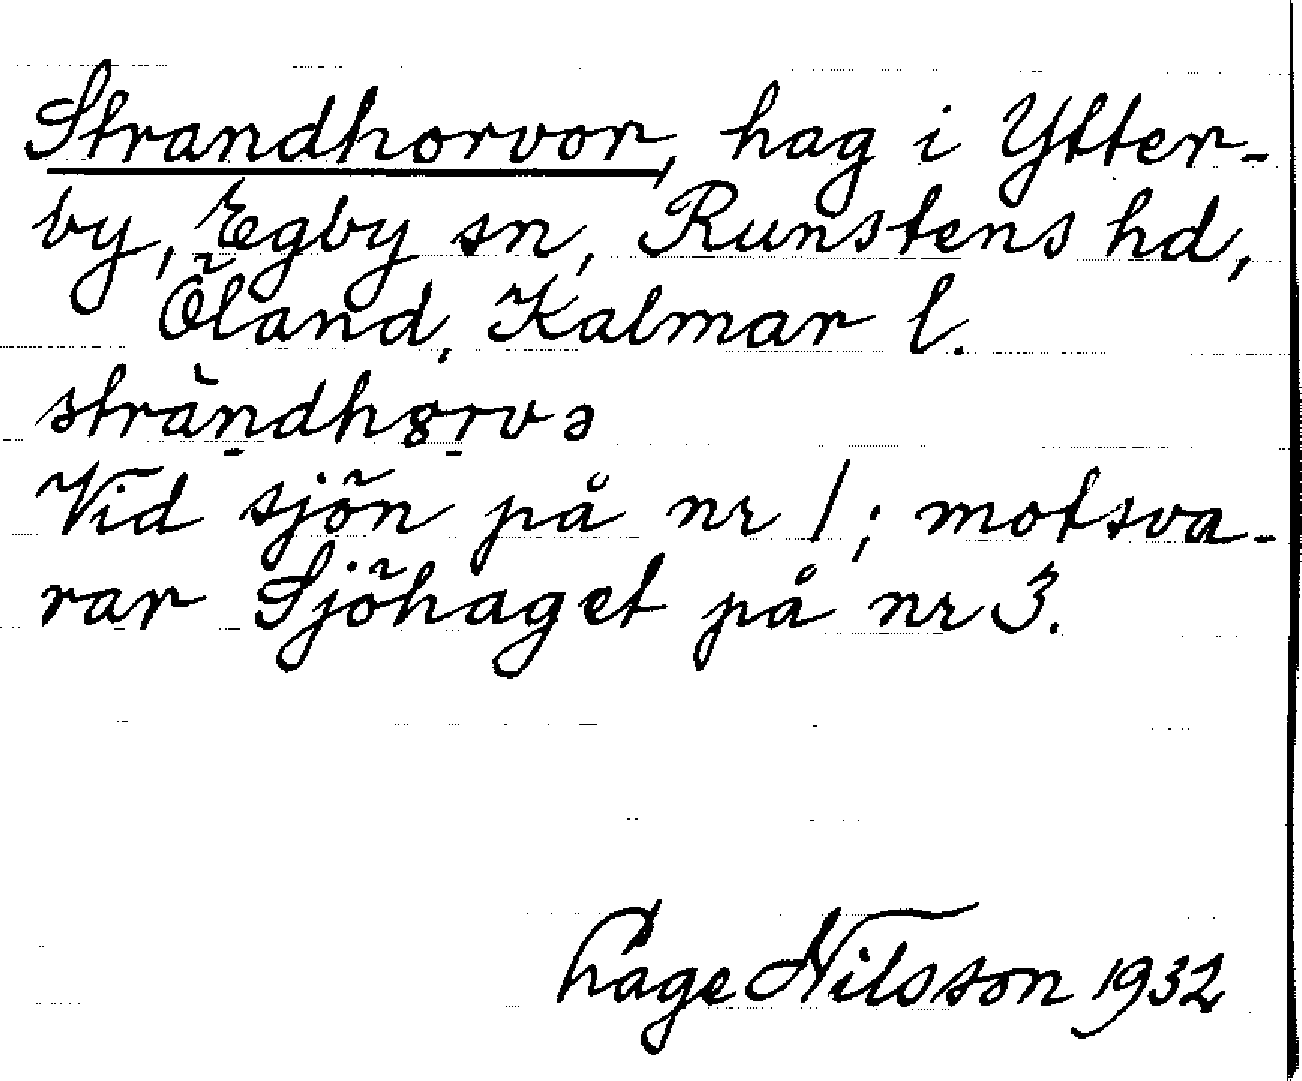 Strandhorvor, hag i Ytter-
by, Egby sn, Runstens hd,
Öland, Kalmar l.
Vid sjön på nr 1; motsva-
rar Sjöhaget på nr 3.
Åage Nilsson 1932